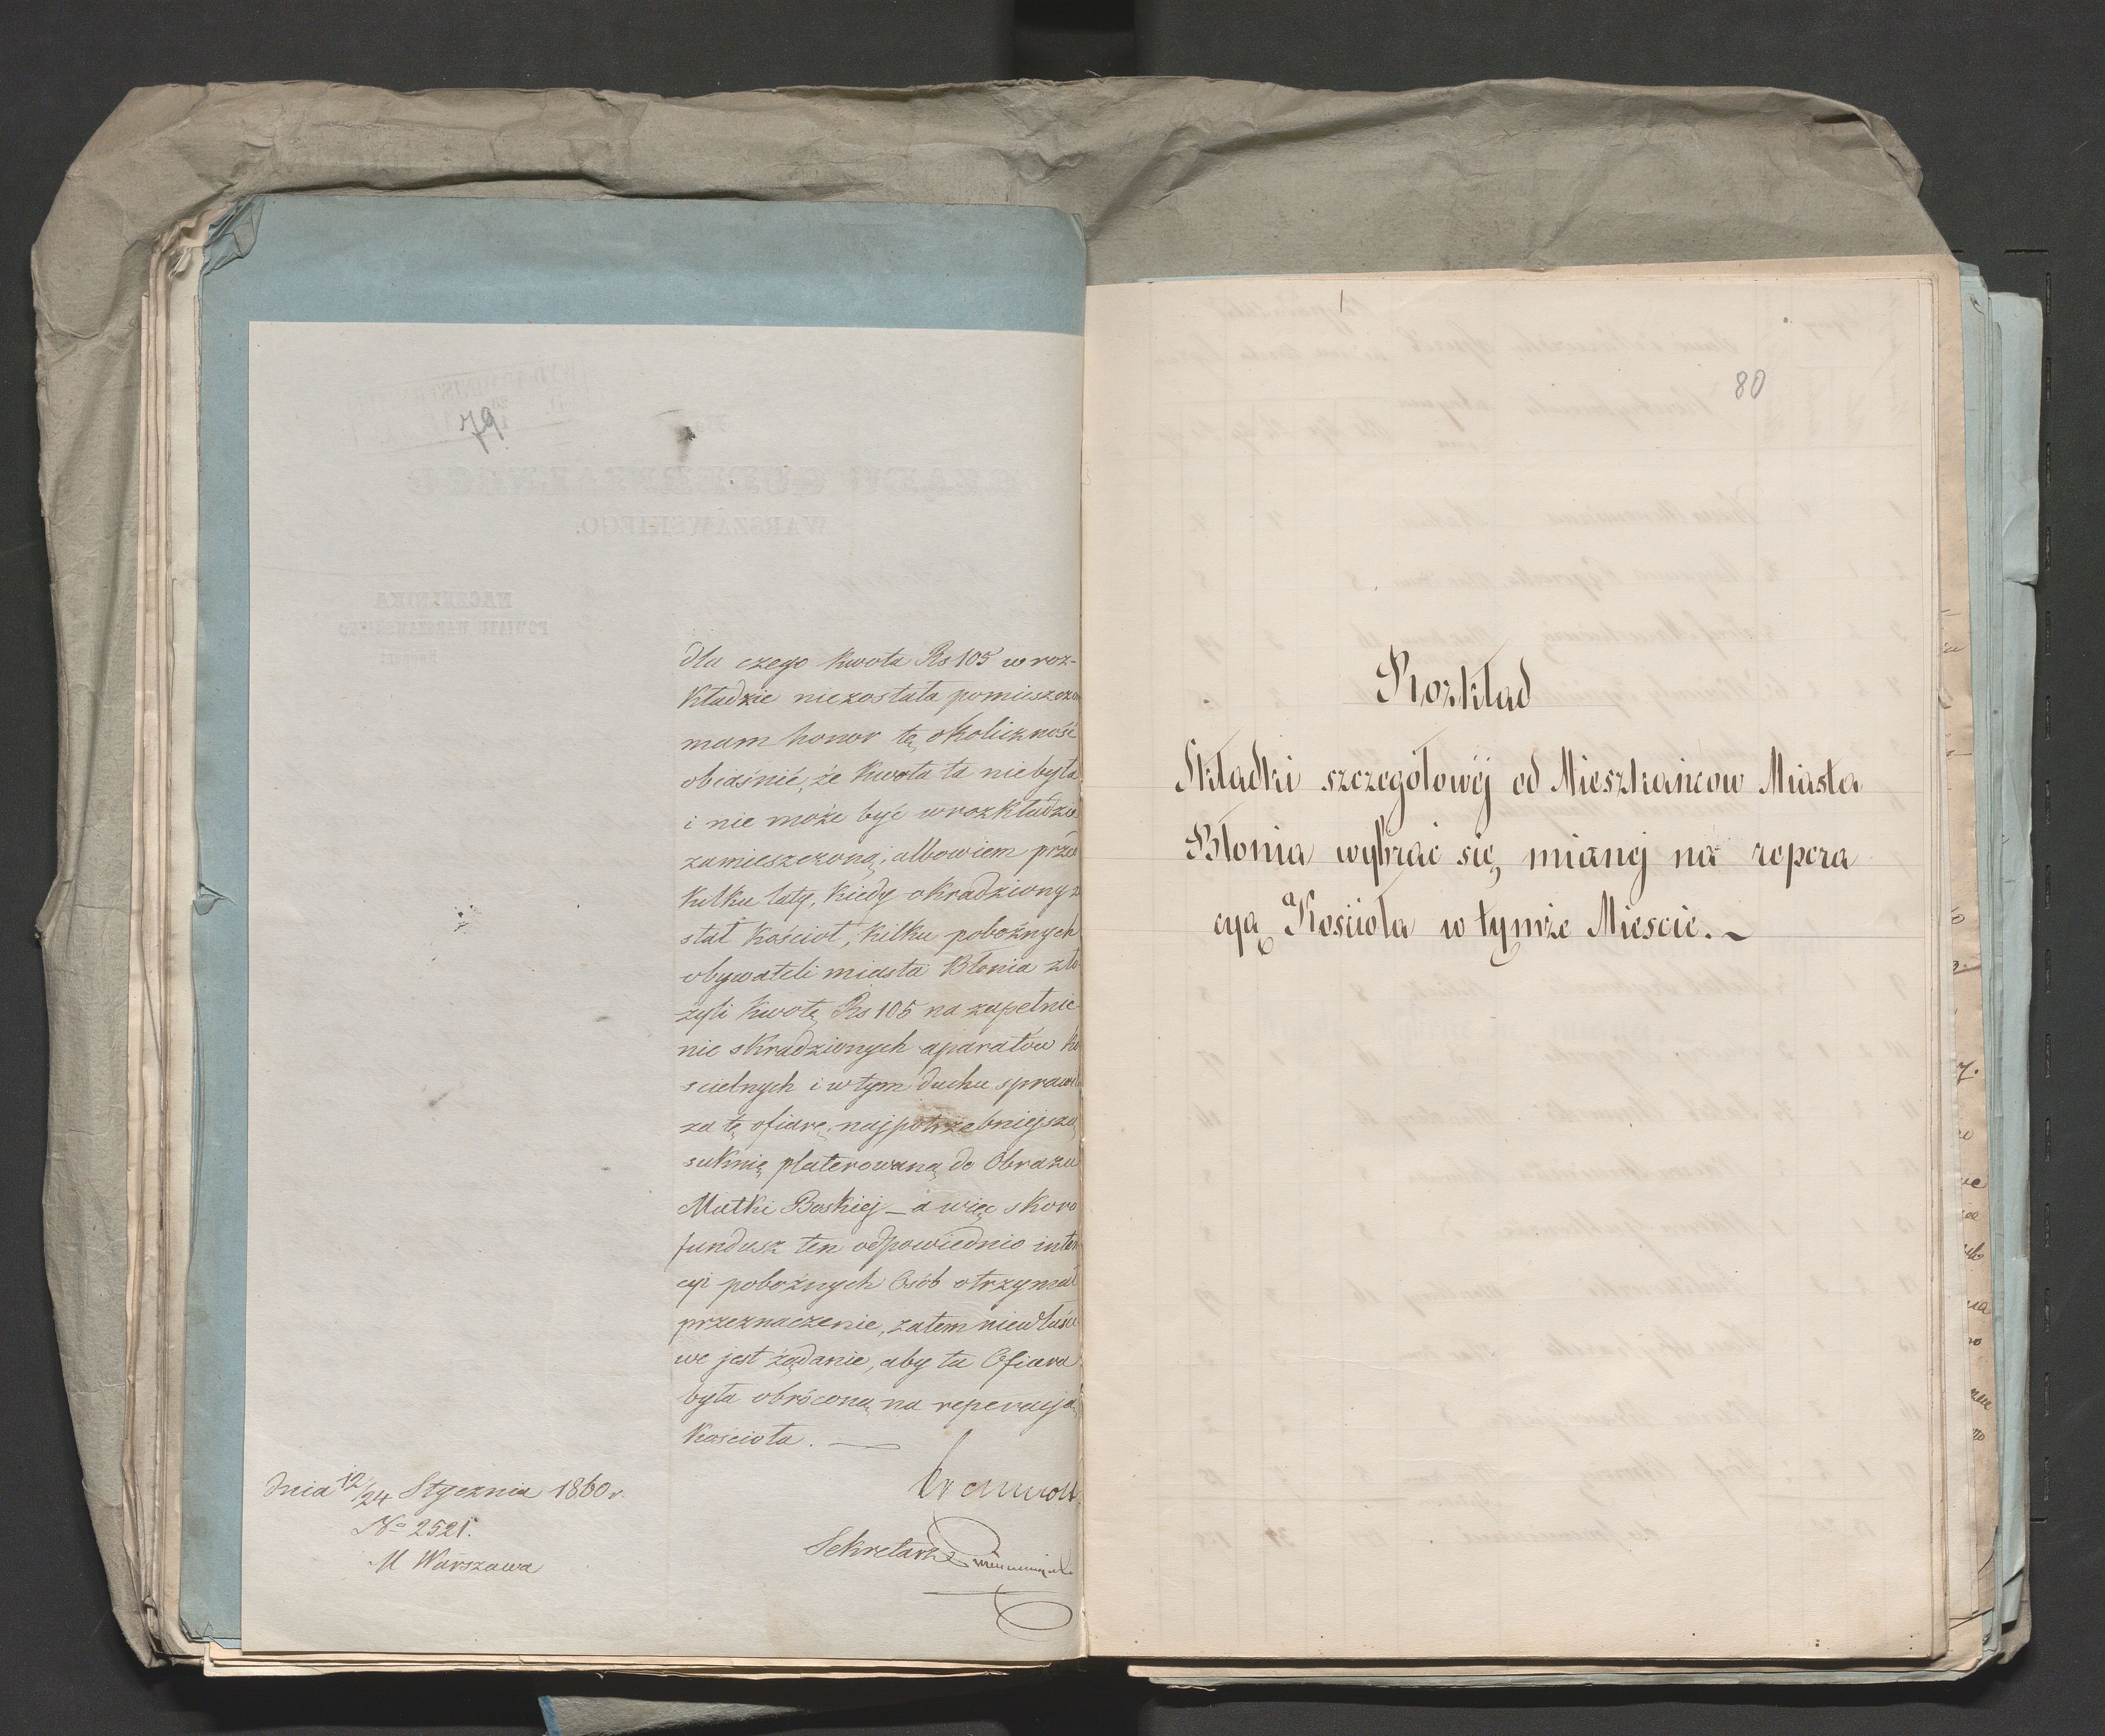 79
dla czego kwota Rs 105 w roz-
kładzie niezostała pomieszczon
mam honor tę okoliczność
obiaśnić, że kwota ta niebyła
i nie może być w rozkładzie
zamieszczoną, albowiem przed
kilku laty, kiedy okradziony z
stał kościoł, kilku pobożnych
obywateli miasta Błonia zło-
żyli kwotę Rs 105 na zapełnie-
nie skradzionych aparatów ko
scielnych i w tym duchu sprawił
za tę ofiarę, najpotrzebniejszą
suknię platerowaną do Obrazu
Matki Boskiej – a więc skoro
fundusz ten odpowiednio inten
cyi pobożnych Osób otrzymał
przeznaczenie, zatem niewłaści
we jest żądanie, aby ta Ofiara
była obróconą na reperacją
Kościoła. —
dnia 12/24 Stycznia 1860 r.
No 2521.
M Warszawa
Sekretarz
80
Rozkład
Składki szczegółowéj od Mieszkańców Miasta
Błonia wybrać się mianej na repera
cyą Kościoła w tymże Miescie. ~